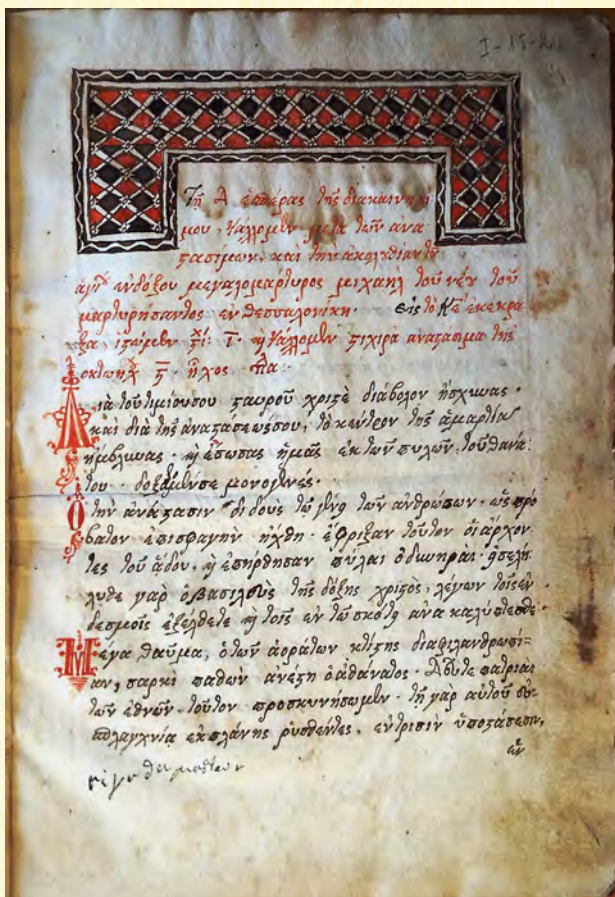 I-15-2
Τῇ Δ ἑσπέρας τῆς διακαινησί
μου, ψάλλομεν μετὰ τῶν ἀνα
στασίμων, καὶ τὴν ἀκολουθίαν τοῦ
ἁγίου ἐνδόξου μεγαλομάρτυρος μιχαὴλ τοῦ νέου τοῦ
μαρτυρήσαντος ἐν θεσσαλονίκη · Εἰς τὸ Κε ἐκέκρα
ξα, ἱστῶμεν ι · κὴ ψάλλομεν στιχιρὰ ἀναστάσιμα τῆς
ὀκτωήχ · ἦχος
Διὰ τοῦ τιμίου σου σταυροῦ χριστὲ διάβολον ἤσχυνας ·
καὶ διὰ τῆς ἀναστάσεώς σου, τὸ κέντρον τῆς ἁμαρτίας
ἤμβλυνας · κὴ ἔσωσας ἡμᾶς ἐκ τῶν πυλῶν τοῦ θανά
του · δοξάζομέν σε μονογενές ·
Ὁ τὴν ἀνάστασιν διδοὺς τῷ γένει τῶν ἀνθρώπων · ὡς πρό
βατον ἐπὶ σφαγὴν ἤχθη · ἔφριξαν τοῦτον οἱ ἄρχον
τες τοῦ ἅδου, κὴ ἐπήρθησαν πύλαι ὀδυνηραί · εἰσελή
λυθε γὰρ ὁ βασιλεὺς τῆς δόξης χριστὸς, λέγων τοῖς ἐν
δεσμοῖς ἐξέλθετε κὴ τοῖς ἐν τῶ σκότει ἀνακαλύπτεσθε ·
Μέγα θαῦμα, ὁ τῶν ἀοράτων κτίστης διὰ φιλανθρωπί
αν, σαρκὶ παθὼν ἀνέστη ὁ ἀθάνατος · Δεῦτε πατριαὶ
τῶν ἐθνῶν τοῦτον προσκυνήσωμεν · τῇ γὰρ αὐτοῦ εὐ
σπλαγχνία ἐκ πλάνης ῥυσθέντες, ἐν τρισὶν ὑποστάσεσιν,